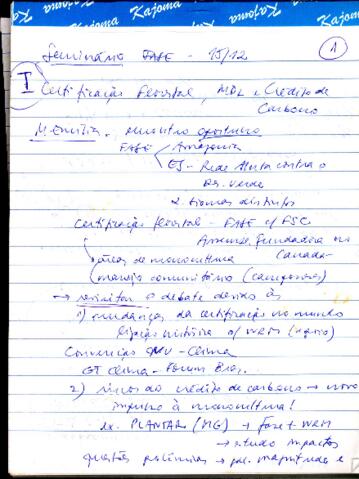 Kajoma Kajoma Kajoma
1
Seminário FASE - 15/12
I
Certificação Florestal, MDL e Crédito de
Carbono
M. Emília, encontro oportuno
FASE Amazonia
ES - Rede Alerta contra o
Des. Verde
2 biomas distintos
Certificação florestal - FASE c/ FSC
Assemb. fundadora no
Canadá
áreas de monocultura
manejo comunitário (camponeses)
→ revisitar o debate devido às
1) mudanças da certificação no mundo
ligação histórica c/ WRM
Convenção ONU - Clima
GT Clima - Forum Bras.
2) riscos do crédito de carbono → novo
impulso à monocultura!
ex. PLANTAR (MG) → Fase + WRM
→ estudo impactos
questões polêmicas → magnitudes e